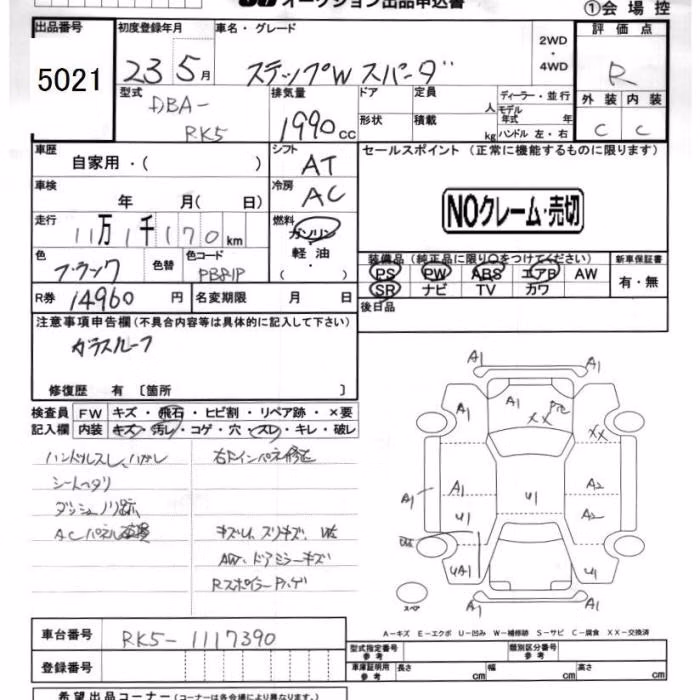 オークション出品申込書 ①会場控
出品番号 初度登録年月 車名・グレード 2WD・4WD 評価点
5021 23 5月 ステップW スパーダ R
型式 DBA-RK5 排気量 1990cc ドア 定員 人 ディーラー・並行 外装 内装
形状 積載 kg モデル年式 年 ハンドル 左・右 C C
車歴 自家用・( ) シフト AT セールスポイント (正常に機能するものに限ります)
車検 年 月( 日) 冷房 AC
NOクレーム・売切
走行 11万1千170km 燃料 ガソリン 軽油・( )
色 ブラック 色替 色コード
装備品 (純正品に限り○をつけてください) 新車保証書
PS PW ABS エアB AW 有・無
SR ナビ TV カワ
R券 14960円 名変期限 月 日 後日品
注意事項申告欄 (不具合内容等は具体的に記入して下さい)
ガラスルーフ
修復歴 有 〔箇所 〕
検査員 FW キズ・飛石・ヒビ割・リペア跡・×要
記入欄 内装 キズ・汚レ・コゲ・穴・スレ・キレ・破レ
ハンドルスレ、ハガレ
シートヘタリ
ダッシュノリ跡
ACパネル
右Rインパネ修正
キズU、スリキズ、
AW、ドアミラーキズ
Rスポイラーハゲ
A1 A1
A1 A1 XX XX
A1 A1 U1 A2
U1 A2
UA1 U1
A1
スペア
A-キズ E-エクボ U-凹み W-補修跡 S-サビ C-腐食 XX-交換済
車台番号 RK5-1117390
型式指定番号 参考 類別区分番号 参考
登録番号 車庫証明用 参考 長さ cm 幅 cm 高さ cm
希望出品コーナー (コーナーは各会場により異なります。)